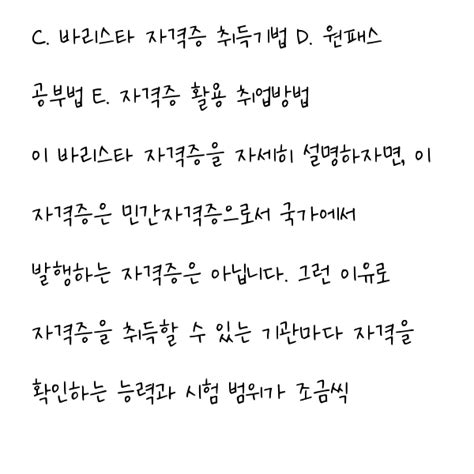 C. 바리스타 자격증 취득기법 D. 원패스
공부법 E. 자격증 활용 취업방법
이 바리스타 자격증을 자세히 설명하자면, 이
자격증은 민간자격증으로서 국가에서
발행하는 자격증은 아닙니다. 그런 이유로
자격증을 취득할 수 있는 기관마다 자격을
확인하는 능력과 시험 범위가 조금씩